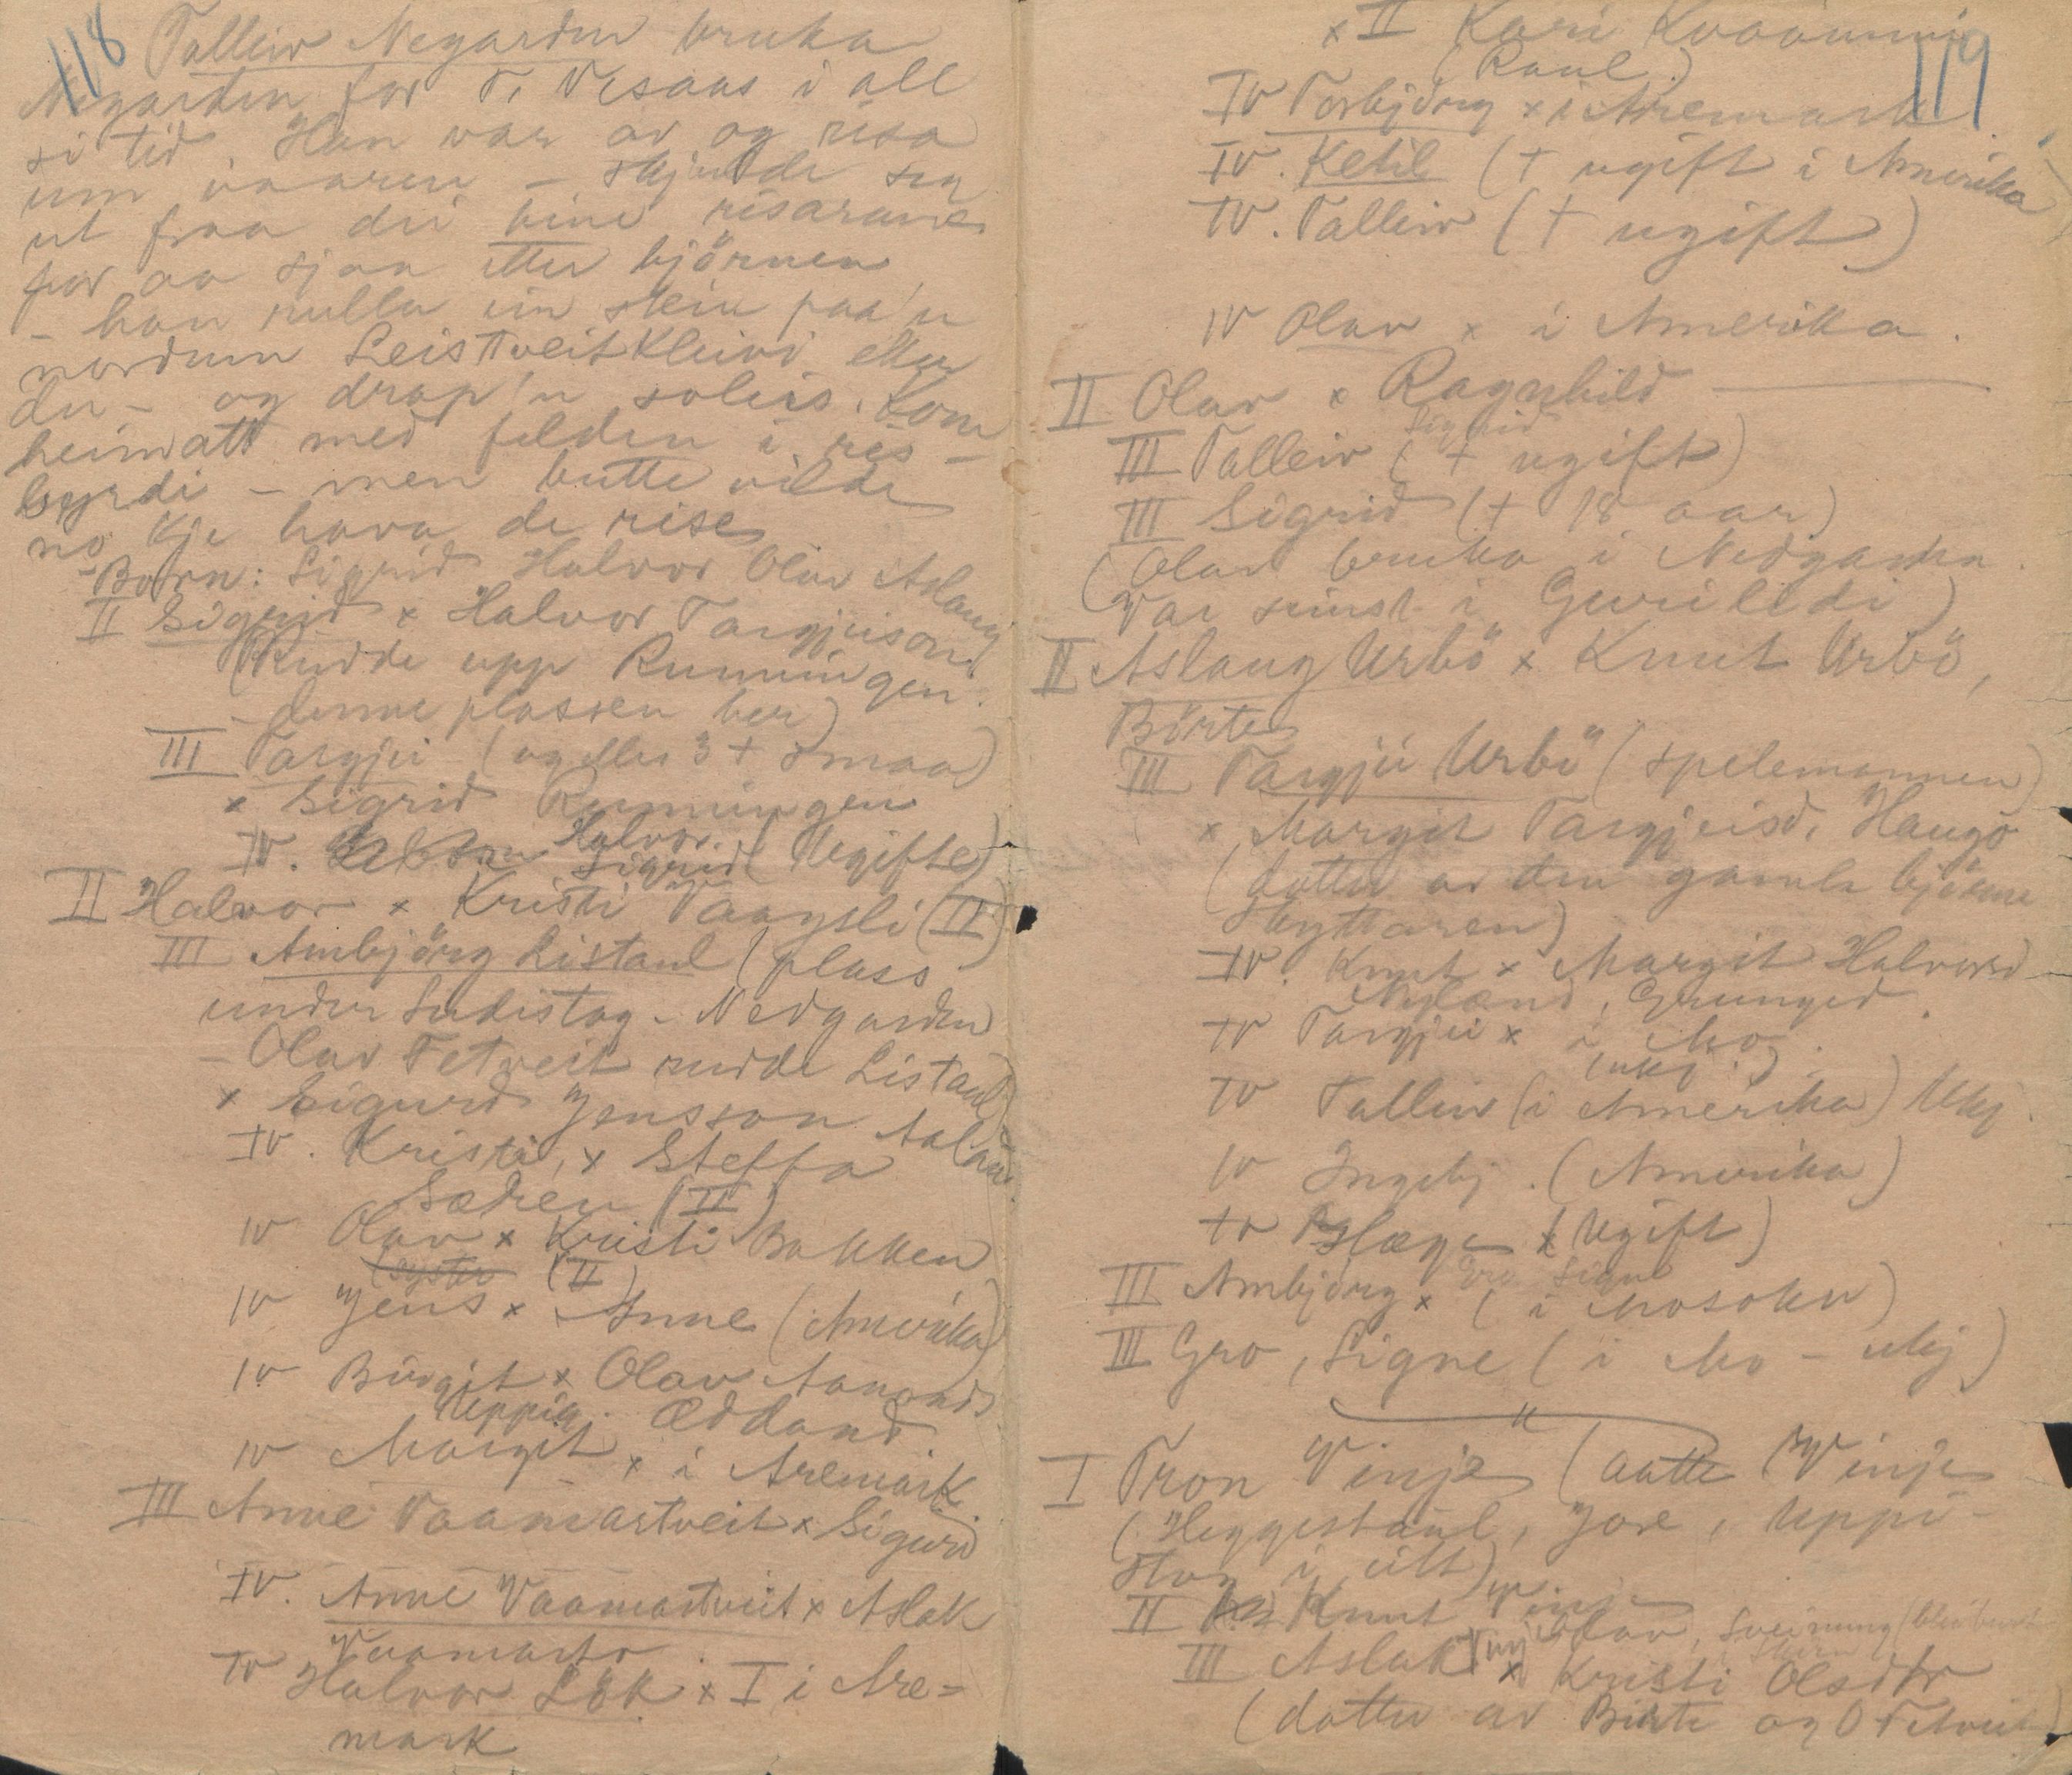 118
Talleiv Negarden bruka
Negarden for T. Vesaas i all
si tid. Han var av og risa
um vaaren – skjulde seg
ut fraa dei hine risarane
for aa sjaa etter björnen
– han rulla ein stein paa'n
nordum Leistveitkleivi eller
du – og drap'n soleis. Kom
heimatt med felden i ris-
byrdi – men bytte vilde
no kje hava de rise
Born: Sigrid Halvor Olav Aslaug
II Sigrid x Halvor Targjeison
(Rudde upp Runningen.
– denne plassen her)
III Targjei (og elles 3 + smaa)
x Sigrid Runningen
IV. Halvor
Sigrid (Ugifte)
II Halvor x Kristi Vaagsli (II)
III Ambjörg Listaul (plass
under Sudistog – Nedgarden
– Olav Tetveit rudde Listaul)
x Sigurd Jensson Aaland
IV. Kristi, x Steffa
Sæter (II)
IV Olav x Kristi Bakken
(syster (II)
IV Jens x Anne (Amerika)
IV Birgit x Olav Aamonds
Uppig. Æddand
IV Margit x i Aremark
III Anne Vaamartveit x Sigurd
IV. Anne Vaamartveit x Aslak
Vaamartv.
IV Halvor Lök x I i Are=
mark
119
x II Kari Kvaammi
(Raul)
IV Torbjörg x i Aremark
IV. Ketil († ugift i Amerika
IV. Talleiv († ugift)
IV Olav x i Amerika.
II Olav x Ragnhild
Sigrid
III Talleiv († ugift)
III Sigrid († 18 aar)
(Olav bruka i Nedgarden.
Var seinst i )
II Aslaug Urbö x Knut Urbö,
Börte
III Targjei Urbö (spelemannen)
x Margit Targjeisd. Haugo
(dotter av den gamle björne
skyttaren)
IV. Knut x Margit Halvorsd
Nyland, Grunged.
IV Targjei x i Mo
(ukj.)
IV Talleiv (i Amerika) Ukj.
IV Ingebj. (Amerika)
IV Hæge (Ugift)
Gro Signe
III Ambjörg x (i Mosokn)
III Gro, Signe (i Mo – ukj)
I Tron Vinje (aatte Vinje
(Heggestaul, Jore, Uppi-
stog i eitt)
II Knut Vinje
III Aslak Vinje Olav, Sveinung
x Kristi Olsdtr
(dotter av Birte og O Tetveit)